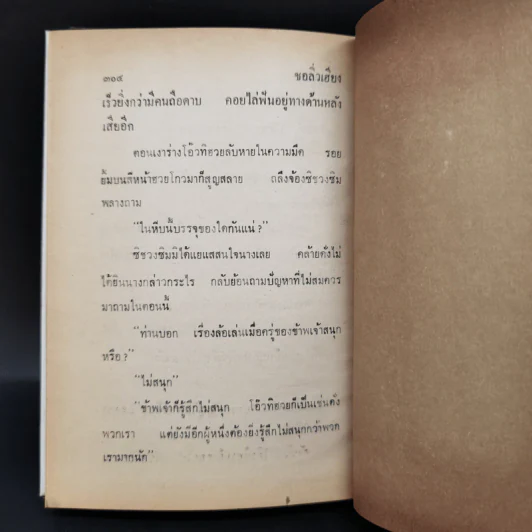 ๓๑๔ ชอลิ่วเฮียง
เร็วยิ่งกว่ามีคนถือดาบ คอยไล่ฟันอยู่ทางด้านหลัง
เสียอีก
ตอนเงาร่างโอ๊วทิฮวยลับหายในความมืด รอย
ยิ้มบนสีหน้าฮวยโกวมาก็สูญสลาย ถลึงจ้องซิชวงซิม
พลางถาม
"ในหีบนี้บรรจุของใดกันแน่ ?"
ซิชวงซิมมิได้แยแสสนใจนางเลย คล้ายดังไม่
ได้ยินนางกล่าวกระไร กลับย้อนถามปัญหาที่ไม่สมควร
มาถามในตอนนี้
"ท่านบอก เรื่องล้อเล่นเมื่อครู่ของข้าพเจ้าสนุก
หรือ ?"
"ไม่สนุก"
"ข้าพเจ้าก็รู้สึกไม่สนุก โอ๊วทิฮวยก็เป็นเช่นดัง
พวกเรา แต่ยังมีอีกผู้หนึ่งต้องยิ่งรู้สึกไม่สนุกกว่าพวก
เรามากนัก"